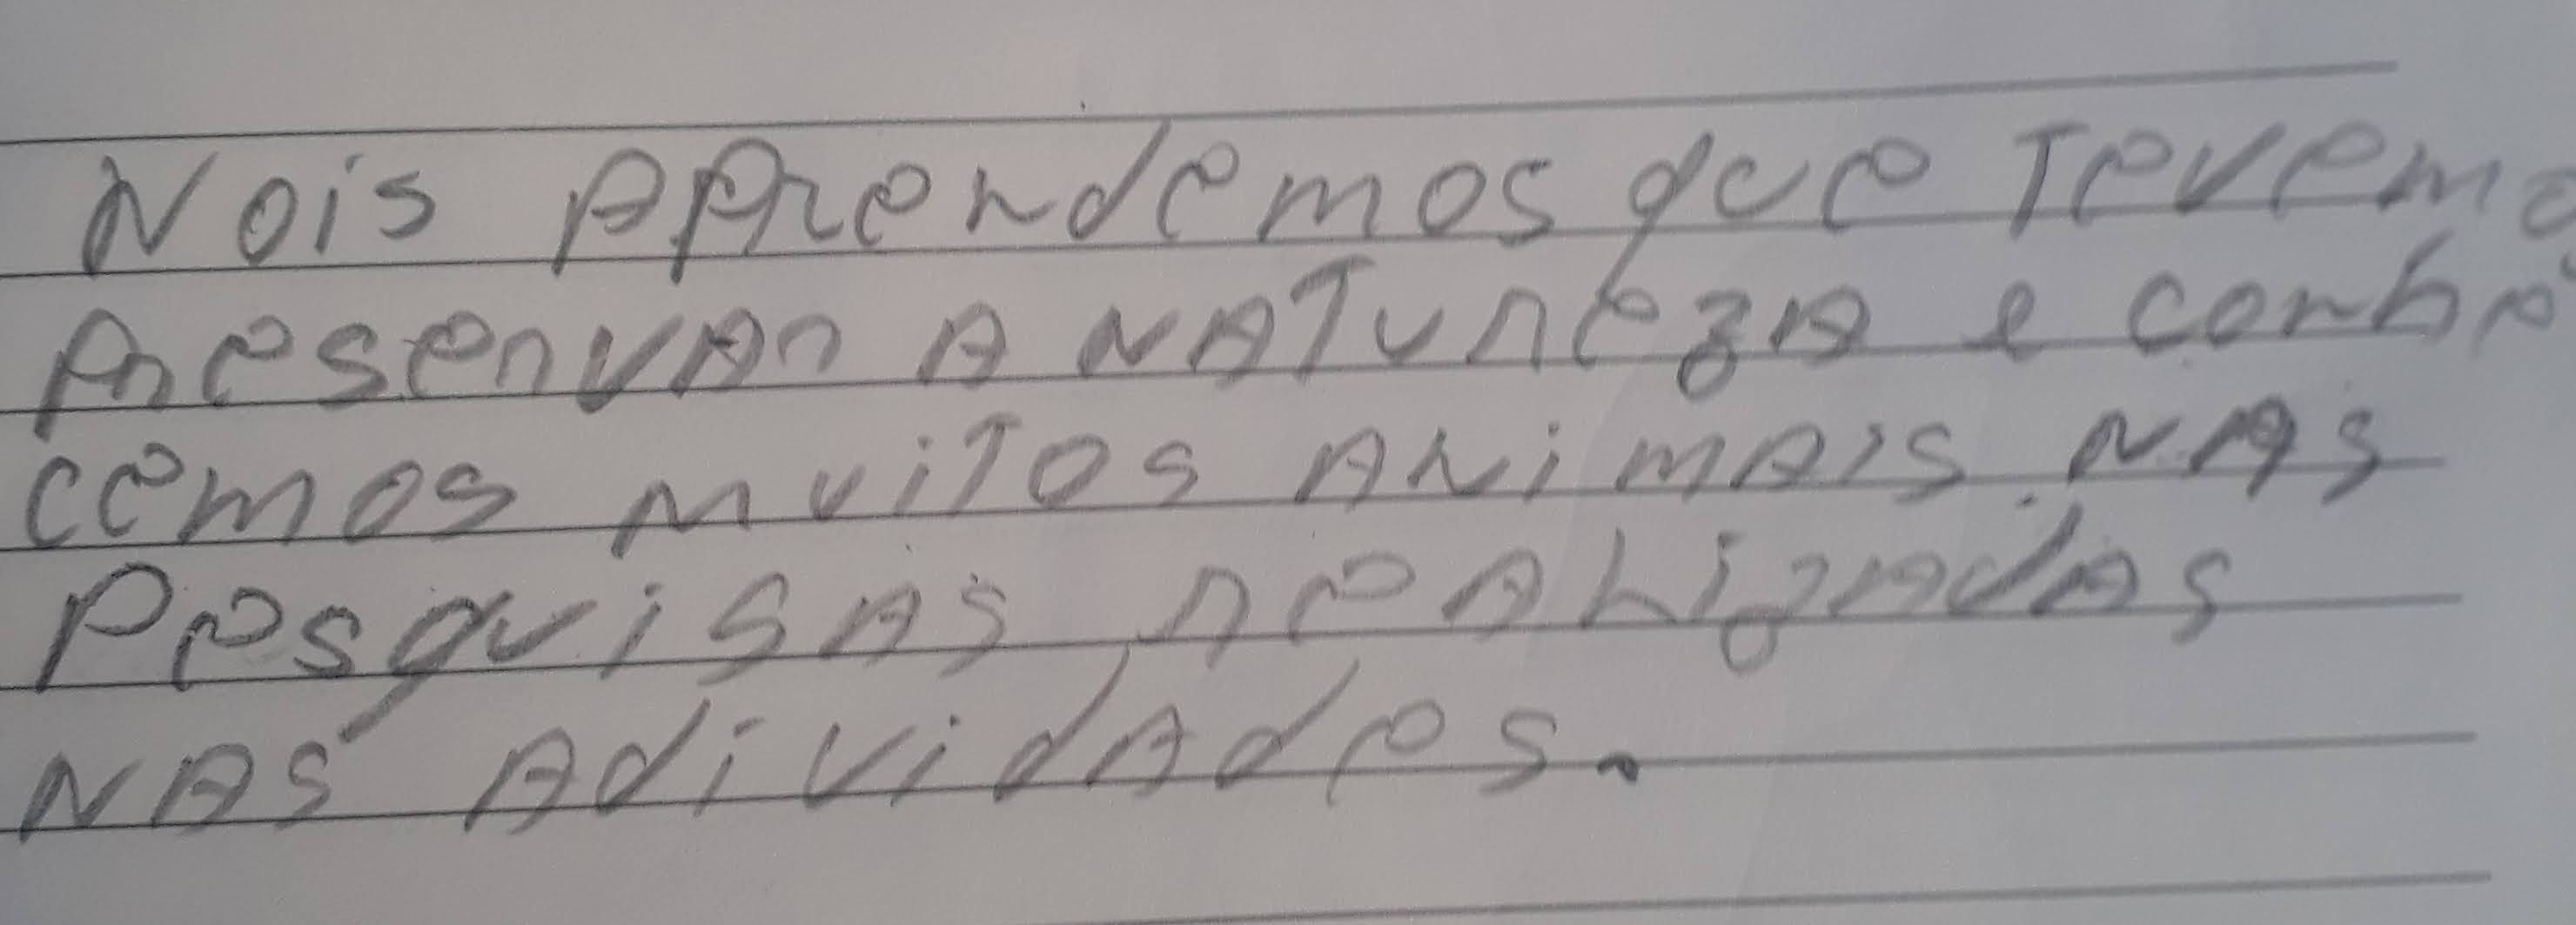 Nois aprendemos que tevemo
preservar a natureza e conhe
cemos muitos animais nas
pesquisas realizadas
nas adividades.